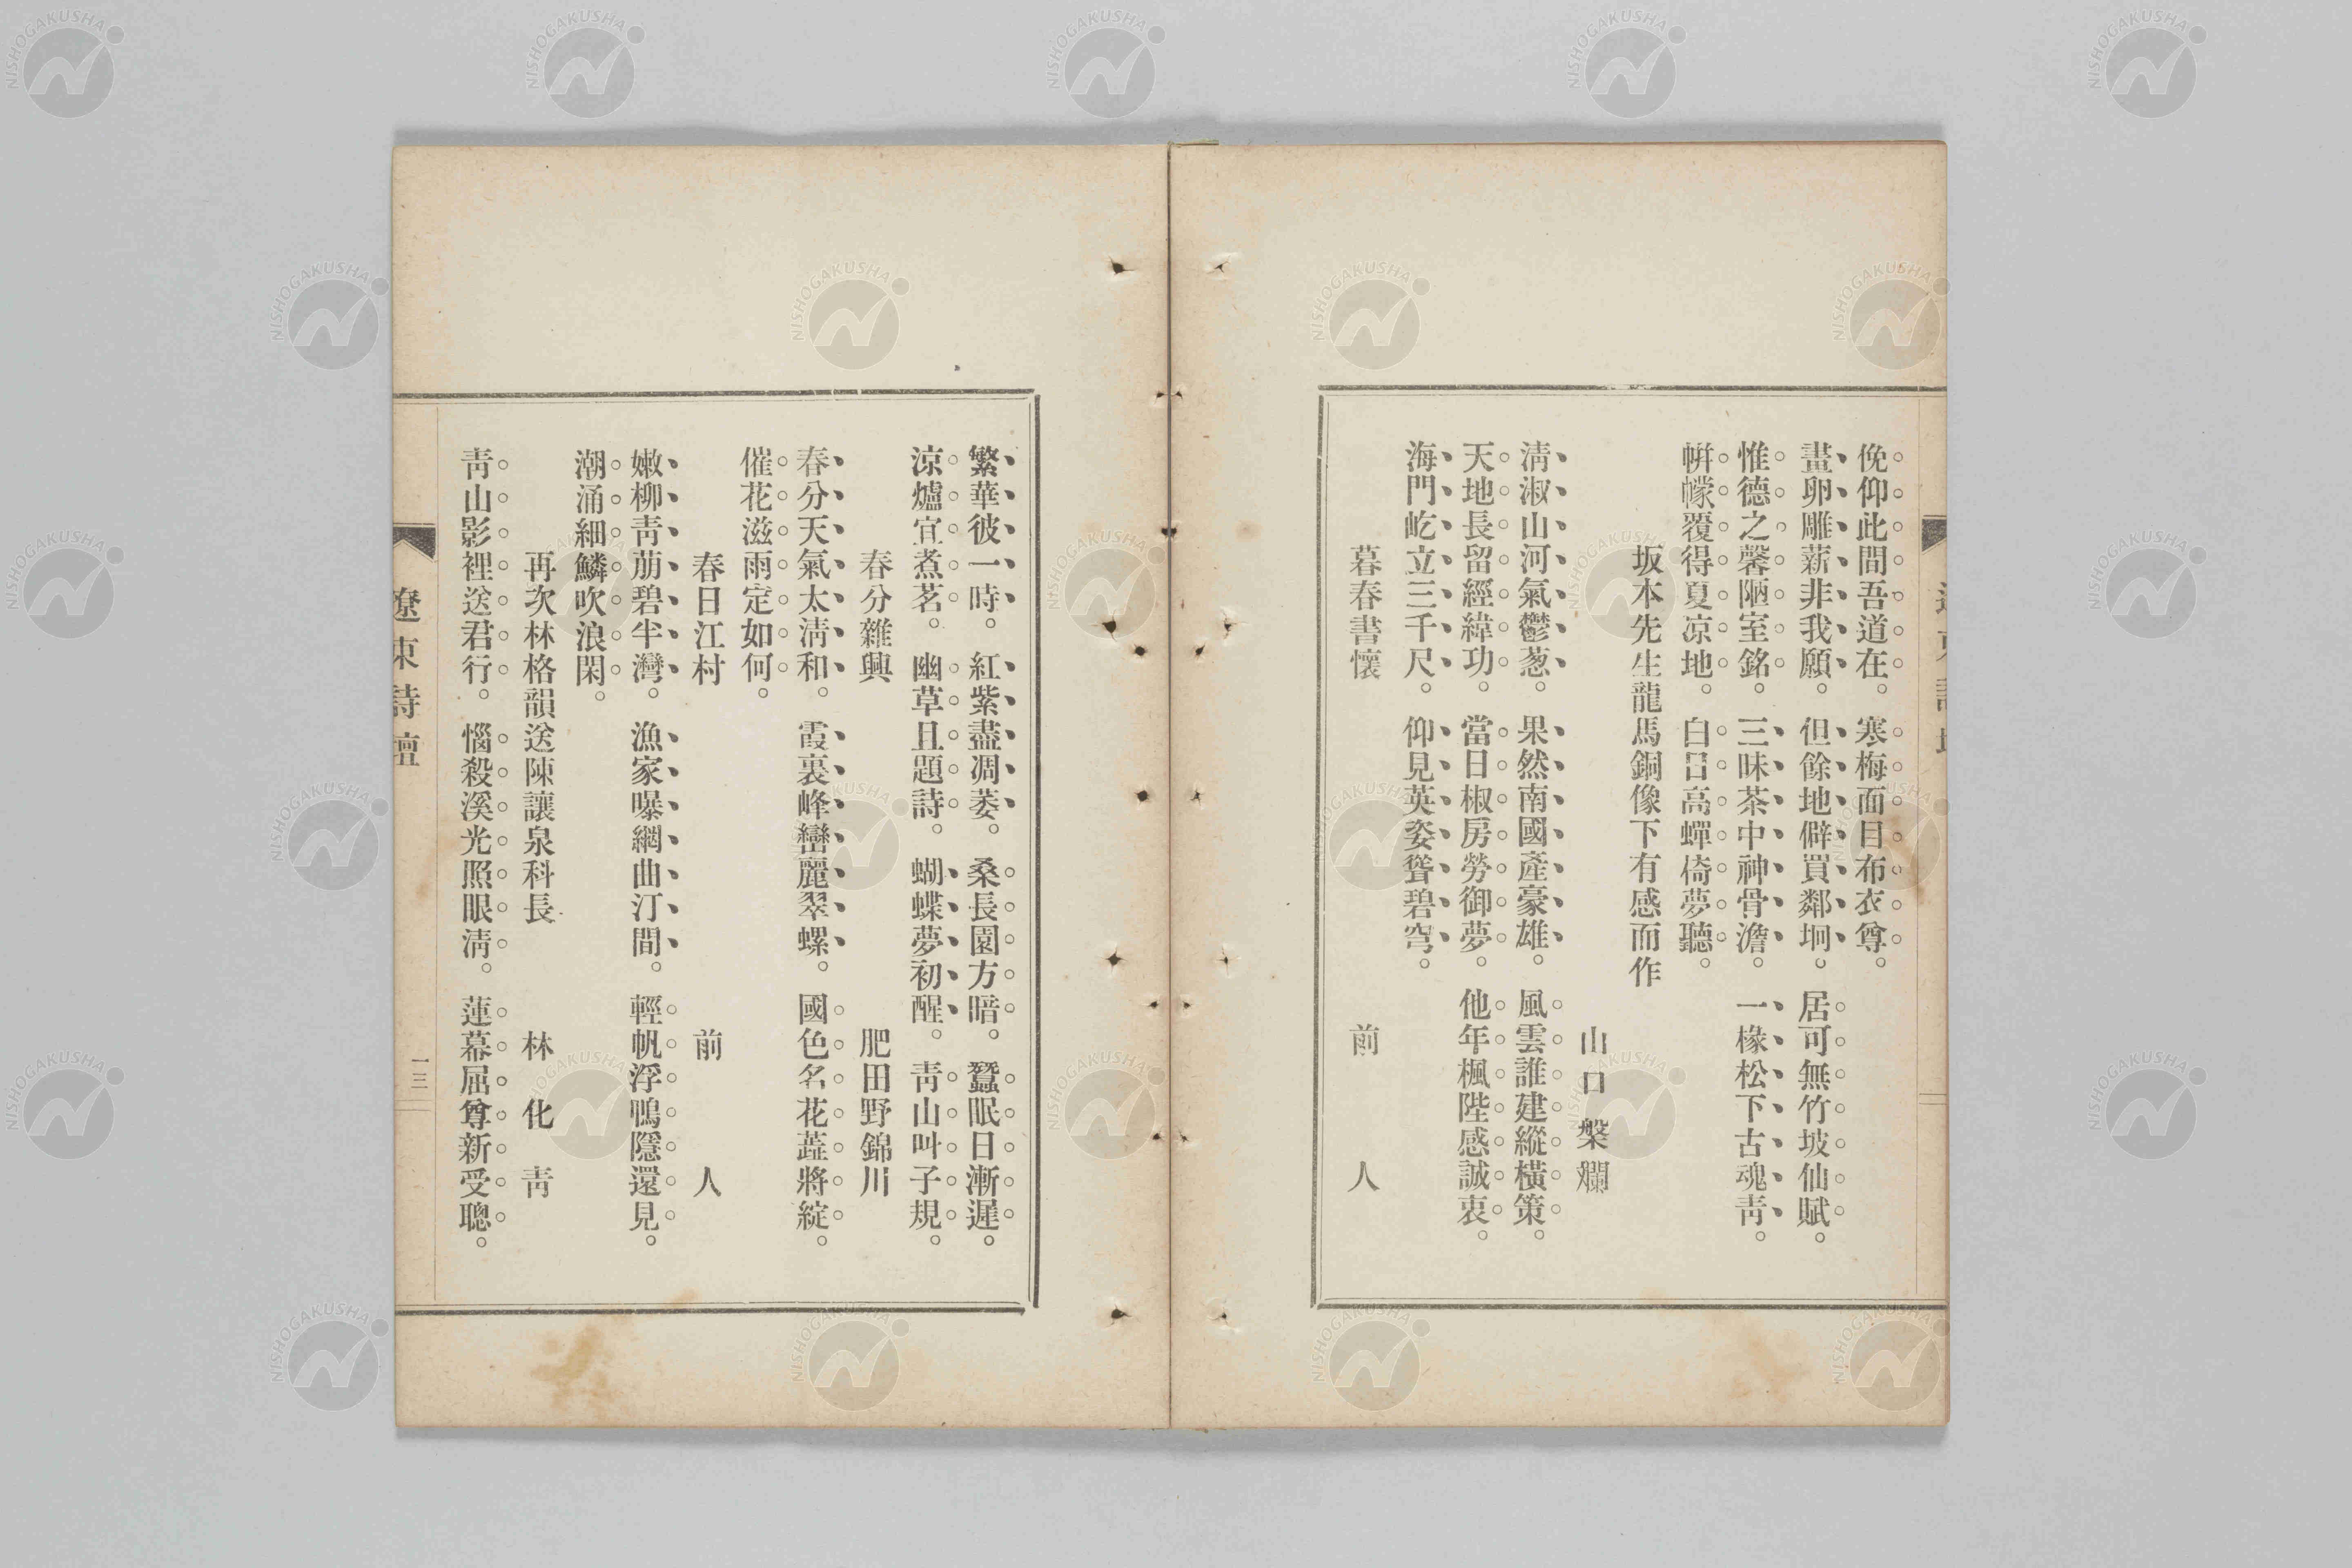 俛仰此間吾道在。寒梅面目布衣尊。
畫卵雕薪非我願。但餘地僻買鄰坰。居可無竹坡仙賦。
惟德之馨陋室銘。三昧茶中神骨澹。一椽松下古魂靑。
帡幪覆得夏凉地。白日高蟬倚夢聽。
坂本先生龍馬銅像下有感而作
山口槃爛
淸淑山河氣鬱葱。果然南國產豪雄。風雲誰建縱橫策。
天地長留經緯功。當日椒房勞御夢。他年楓陛感誠衷。
海門屹立三千尺。仰見英姿聳碧穹。
暮春書懷　前人
繁華彼一時。紅紫盡凋萎。桑長園方暗。蠶眠日漸遲。
涼爐宜煮茗。幽草且題詩。蝴蝶夢初醒。靑山叫子規。
春分雜興　肥田野錦川
春分天氣太淸和。霞裏峰巒麗翠螺。國色名花蕋將綻。
催花滋雨定如何。
春日江村　前人
嫩柳靑萠碧半灣。漁家曝網曲汀間。輕帆浮鴨隱還見。
潮涌細鱗吹浪閑。
再次林格韻送陳讓泉科長　林化靑
靑山影裡送君行。惱殺溪光照眼淸。蓮幕屈尊新受聰。
遼東詩壇
一三
NISHOGAKUSHA